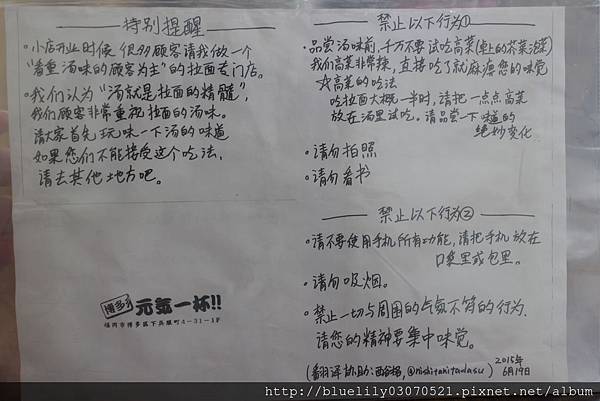 特别提醒
·小店开业时候,很多顾客请我做一个
“看重汤味的顾客为主”的拉面专门店。
·我们认为“汤就是拉面的精髓”,
我们顾客非常重视拉面的汤味。
请大客首先玩味一下汤的味道
如果您们不能接受这个吃法,
请去其他地方吧。
博多
元氣一杯!!
福岡市博多区下呉服町4-31-1F
禁止以下行为①
·品尝汤味前,千万不要试吃高菜(桌上的芥菜泡菜)
我们高菜非常辣,直接吃了就麻痹您的味觉
☆高菜的吃法
吃拉面大概一半时,请把一点点高菜
放在汤里试吃。请品尝一下味道的
绝妙变化
·请勿拍照
·请勿看书
禁止以下行为②
·请不要使用手机所有功能,请把手机放在
口袋里或包里。
·请勿吸烟。
·禁止一切与周围的气氛不符的行为.
请您的精神要集中味觉。
(翻译协助: @nishitanitadasu)
2015年
6月19日
http://bluelily03070521.pixnet.net/album